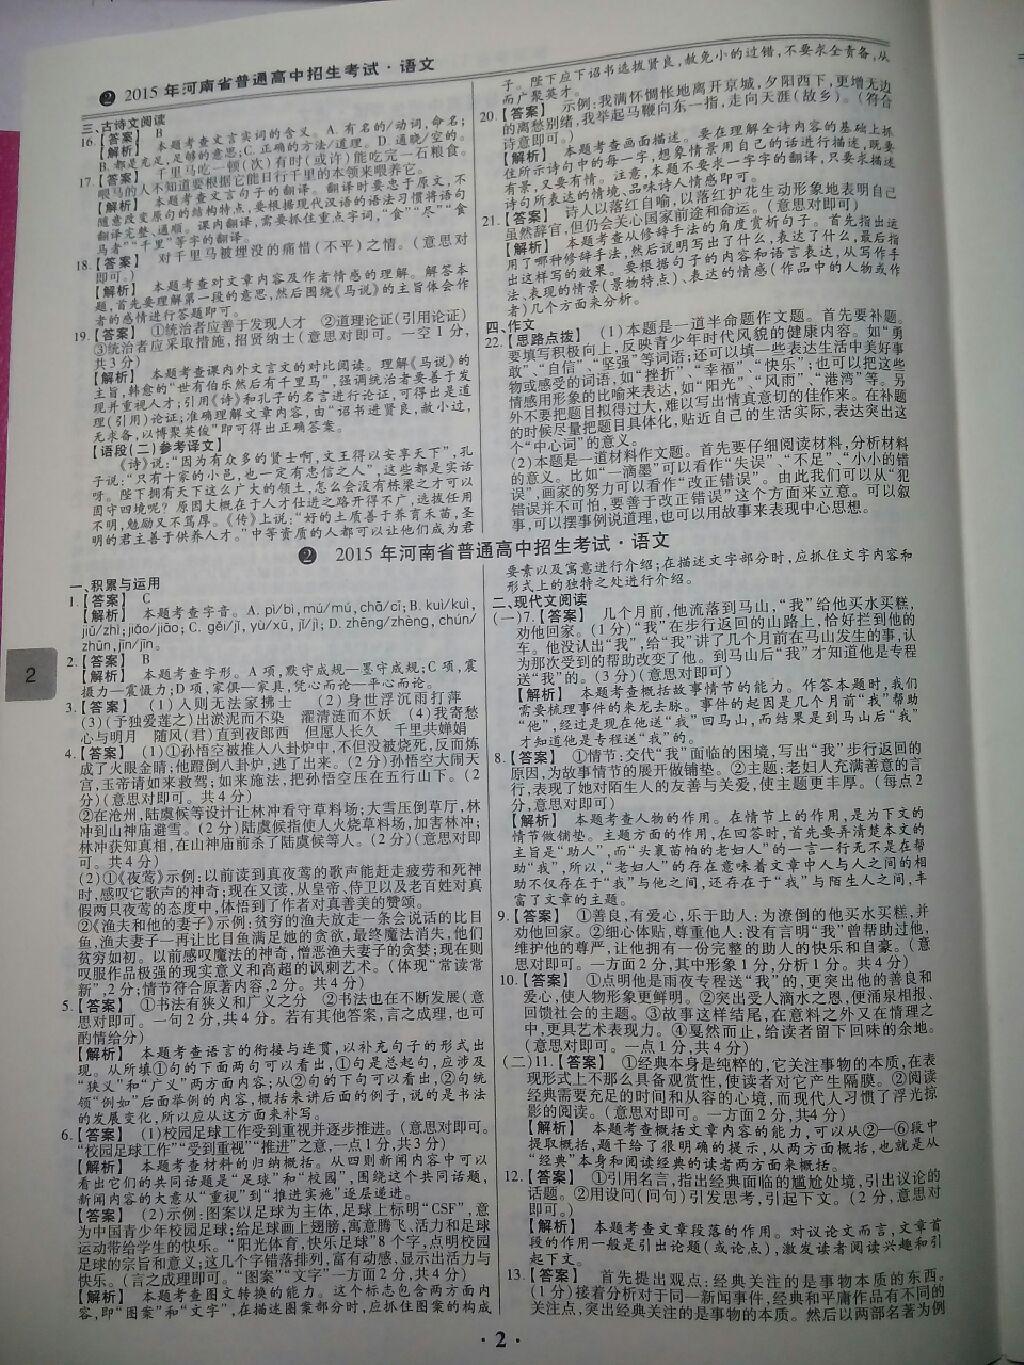 ❷ 2015年河南省普通高中招生考试·语文
三、古诗文阅读
16.【答案】 B
【解析】 本题考查文言实词的含义。A. 有名的/动词,命名;
B. 都是充足,足够的意思;C. 正确的方法/道理。D. 通晓/空的。
17.【答案】 千里马吃一顿(次)有时(或许)能吃完一石粮食。
喂马的人不知道要根据它能日行千里的本领来喂养它。
【解析】 本题考查文言句子的翻译。翻译时要忠于原文,不
随意改变原句的结构特点,要根据现代汉语的语法习惯将语句
翻译完整、通顺。课内翻译,需要抓住重点字词,“食”“尽”“食
马者”“千里”等字的翻译。
18.【答案】 对千里马被埋没的痛惜(不平)之情。(意思对
即可。)
【解析】 本题考查对文章内容及作者情感的理解。解答本
题,首先要理解第一段的意思,然后围绕《马说》的主旨体会作
者的感情进行答题即可。
19.【答案】 ①统治者应善于发现人才 ②道理论证(引用论证)
③统治者应采取措施,招贤纳士(意思对即可。一空1分,
共3分)
【解析】 本题考查课内外文言文的对比阅读。理解《马说》的
主旨,韩愈的“世有伯乐然后有千里马”,强调统治者要善于发
现并重视人才;引用《诗》和孔子的名言进行论证,可得出是道
理(引用)论证;准确理解文章内容,由“诏书进贤良,赦小过,
无求备,以博聚英俊”即可得出正确答案。
【语段(二)参考译文】
《诗》说:“因为有众多的贤士啊,文王得以安享天下”,孔
子说:“只有十家的小邑,也一定有忠信之人”,这些都是实话
呀。陛下拥有天下这么广大的领土,怎么会没有栋梁之才可以
固守四境呢?原因大概在于人才仕进之路开得不广,选拔任用
不明,勉励又不笃厚。《传》上说:“好的土质善于养育禾苗,圣
明的君主善于供养人才。”中等资质的人都可以让他们成为君
子。陛下应下诏书选拔贤良,赦免小的过错,不要求全责备,从
而广聚英才。
20.【答案】 示例:我满怀惆怅地离开京城,夕阳西下,更增无边
的离愁别绪,我举起马鞭向东一指,走向天涯(故乡)。(符合
诗意即可。)
【解析】 本题考查画面描述。要在理解全诗内容的基础上抓
住所示诗句中的每一字,想象情景用自己的话进行描述,既要
有景,又要有情。注意,本题不要求一字字的翻译,只要求描述
诗句所表达的情境、品味诗人情感即可。
21.【答案】 诗人以落红自喻,以落红护花生动形象地表明自己
虽然辞官,但仍会关心国家前途和命运。(意思对即可)
【解析】 本题考查从修辞手法的角度赏析句子。首先指出运
用了哪种修辞手法,然后说明写出了什么,表达了什么,最后指
出这样写的效果。要根据句子的内容和语言表达,从写作手
法、表现的情景(景物特点)、表达的情感(作品中的人物或作
者)几个方面来分析。
四、作文
22.【思路点拨】 (1)本题是一道半命题作文题。首先要补题。
要填写积极向上,反映青少年时代风貌的健康内容。如“勇
敢”、“自信”、“坚强”等词语;还可以填一些表达生活中美好事
物或感受的词语,如“挫折”、“幸福”、“快乐”;也可以把这些
情感用形象的比喻来表达,如“阳光”、“风雨”、“港湾”等。另
外不要把题目拟得过大,难以写出情真意切的佳作来。在补题
的时候尽量把题目具体化,贴近自己的生活实际,表达突出这
个“中心词”的意义。
(2)本题是一道材料作文题。首先要仔细阅读材料,分析材料
的意义。比如“一滴墨”可以看作“失误”、“不足”、“小小的错
误”,画家的努力可以看作“改正错误”。由此我们可以从“犯
错误并不可怕,要善于改正错误”这个方面来立意。可以叙
事,可以摆事例说道理,也可以用故事来表现中心思想。
❷ 2015年河南省普通高中招生考试·语文
一、积累与运用
1.【答案】 C
【解析】 本题考查字音。A. pì/bì,mú/mú,chā/cī;B. kuì/kuì,
jiū/zhì;jiǎo/jiāo;C. gěi/jǐ,yù/xū,jī/jì;D. zhēng/zhèng,chún/
zhūn,jīn/jīn。
2.【答案】 B
【解析】 本题考查字形。A项,默守成规—墨守成规;C项,震
摄力—震慑力;D项,家俱—家具,凭心而论—平心而论。
3.【答案】 (1)入则无法家拂士 (2)身世浮沉雨打萍
(3)(予独爱莲之)出淤泥而不染 濯清涟而不妖 (4)我寄愁
心与明月 随风(君)直到夜郎西 但愿人长久 千里共婵娟
4.【答案】 (1)①孙悟空被推入八卦炉中,不但没被烧死,反而炼
成了火眼金睛;他蹬倒八卦炉,逃了出来。(2分)孙悟空大闹天
宫,玉帝请如来救驾;如来施法,把孙悟空压在五行山下。(2
分)(意思对即可。共4分)
②在沧州,陆虞候等设计让林冲看守草料场;大雪压倒草厅,林
冲到山神庙避雪。(2分)陆虞候指使人火烧草料场,加害林冲;
林冲获知真相,在山神庙前杀了陆虞候等人。(2分)(意思对即
可。共4分)
(2)①《夜莺》示例:以前读到真夜莺的歌声能赶走疲劳和死神
时,感叹它歌声的神奇;现在又读,从皇帝、侍卫以及老百姓对真
假两只夜莺的态度中,体悟到了作者对真善美的赞颂。
②《渔夫和他的妻子》示例:贫穷的渔夫放走一条会说话的比目
鱼,渔夫妻子一再让比目鱼满足她的贪欲,最终魔法消失,他们
贫穷如初。以前感叹魔法的神奇,憎恶渔夫妻子的贪婪;现在则
叹服作品极强的现实意义和高超的讽刺艺术。(体现“常读常
新”,2分;情节符合原著内容,2分。共4分)
5.【答案】 ①书法有狭义和广义之分 ②书法也在不断发展(意
思对即可。一句2分,共4分。若有其他答案,言之成理,也可
酌情给分)
【解析】 本题考查语言的衔接与连贯,以补充句子的形式出
现。从所填①句的下面两句可以看出,①句是总起句,应涉及
“狭义”和“广义”两方面内容;从②句的下句可以看出,②句统
领“例如”后面举例的内容,概括来讲后面的例子,说的是书法
的发展变化,所以应从这方面来补写。
6.【答案】 (1)校园足球工作受到重视并逐步推进。(意思对即可。
“校园足球工作”“受到重视”“推进”之意,一点1分,共3分)
【解析】 本题考查材料的归纳概括。从四则新闻内容中可以
看出它们的共同话题是“足球”和“校园”,围绕这个共同话题,
新闻内容的大意从“重视”到“推进实施”逐层递进。
【答案】 (2)示例:图案以足球为主体,足球上标明“CSF”,意
为中国青少年校园足球;给足球画上翅膀,寓意腾飞、活力和足球
运动带给学生的快乐。“阳光体育,快乐足球”8个字,点明校园
足球的宗旨和意义;这几个字错落排列,富有动感,显示出活力与
快乐。(言之成理即可。“图案”“文字”一方面2分,共4分)
【解析】 本题考查图文转换的能力。这个标志包含两方面内
容,即“图案”和“文字”,在描述图案部分时,应抓住图案的构成
要素以及寓意进行介绍;在描述文字部分时,应抓住文字内容和
形式上的独特之处进行介绍。
二、现代文阅读
(一)7.【答案】 几个月前,他流落到马山,“我”给他买水买糕,
劝他回家。(1分)“我”在步行返回的山路上,恰好拦到他的
车。他没认出“我”,给“我”讲了几个月前在马山发生的事,认
为那次受到的帮助改变了他。到马山后“我”才知道他是专程
送“我”的。(3分)(意思对即可)
【解析】 本题考查概括故事情节的能力。作答本题时,我们
需要梳理事件的来龙去脉。事件的起因是几个月前“我”帮助
“他”,经过是现在他送“我”回马山,而结果是到马山后“我”
才知道他是专程送“我”的。
8.【答案】 ①情节:交代“我”面临的困境,写出“我”步行返回的
原因,为故事情节的展开做铺垫。②主题:老妇人充满善意的言
行,表现了她对陌生人的友善与关爱,使主题更丰厚。(每点2
分,意思对即可)
【解析】 本题考查人物的作用。在情节上的作用,是为下文的
情节做铺垫。主题方面的作用,在回答时,首先要弄清楚本文的
主旨是“助人”,而“头裹苗帕的老妇人”的一言一行无不是在帮
助“我”,所以,“老妇人”的存在意味着文章中人与人之间的相
助不仅存在于“我”与他之间,还存在于“我”与陌生人之间,丰
富了文章的主题。
9.【答案】 ①善良,有爱心,乐于助人:为潦倒的他买水买糕,并
劝他回家。②细心体贴,尊重他人:没有言明“我”曾帮助过他,
维护他的尊严,让他拥有一份完整的助人的快乐和自豪。(意
思对即可。一方面2分,其中形象1分,分析1分。共4分)
10.【答案】 ①点明他是雨夜专程送“我”的,更突出他的善良和
爱心,使人物形象更鲜明。②突出受人滴水之恩,便涌泉相报、
回馈社会的主题。③故事这样结尾,在意料之外又在情理之
中,更具艺术表现力。④戛然而止,给读者留下回味的余地。
(意思对即可。一点1分,共4分)
(二)11.【答案】 ①经典本身是纯粹的,它关注事物的本质,在表
现形式上不那么具备观赏性,使读者对它产生隔膜。②阅读
经典需要充足的时间和从容的心境,而现代人习惯了浮光掠
影的阅读。(意思对即可。一方面2分,共4分)
【解析】 本题考查概括文章内容的能力,可以从②—⑥段中
提取概括,题干给了很明确的提示,从两方面概括,也就是从
“经典”本身和阅读经典的读者两方面来概括。
12.【答案】 ①引用名言,指出经典面临的尴尬处境,引出议论的
话题。②用设问(问句)引发思考,引起下文。(2分,意思对
即可。)
【解析】 本题考查文章段落的作用。对议论文而言,文章首
段的作用一般是引出论题(或论点),激发读者阅读兴趣和引
起下文。
13.【答案】 首先提出观点:经典关注的是事物本质的东西。
(1分)接着分析对于同一新闻事件,经典和平庸作品有不同的
关注点,突出经典关注的是事物的本质。然后以两部名著为例
2
·2·